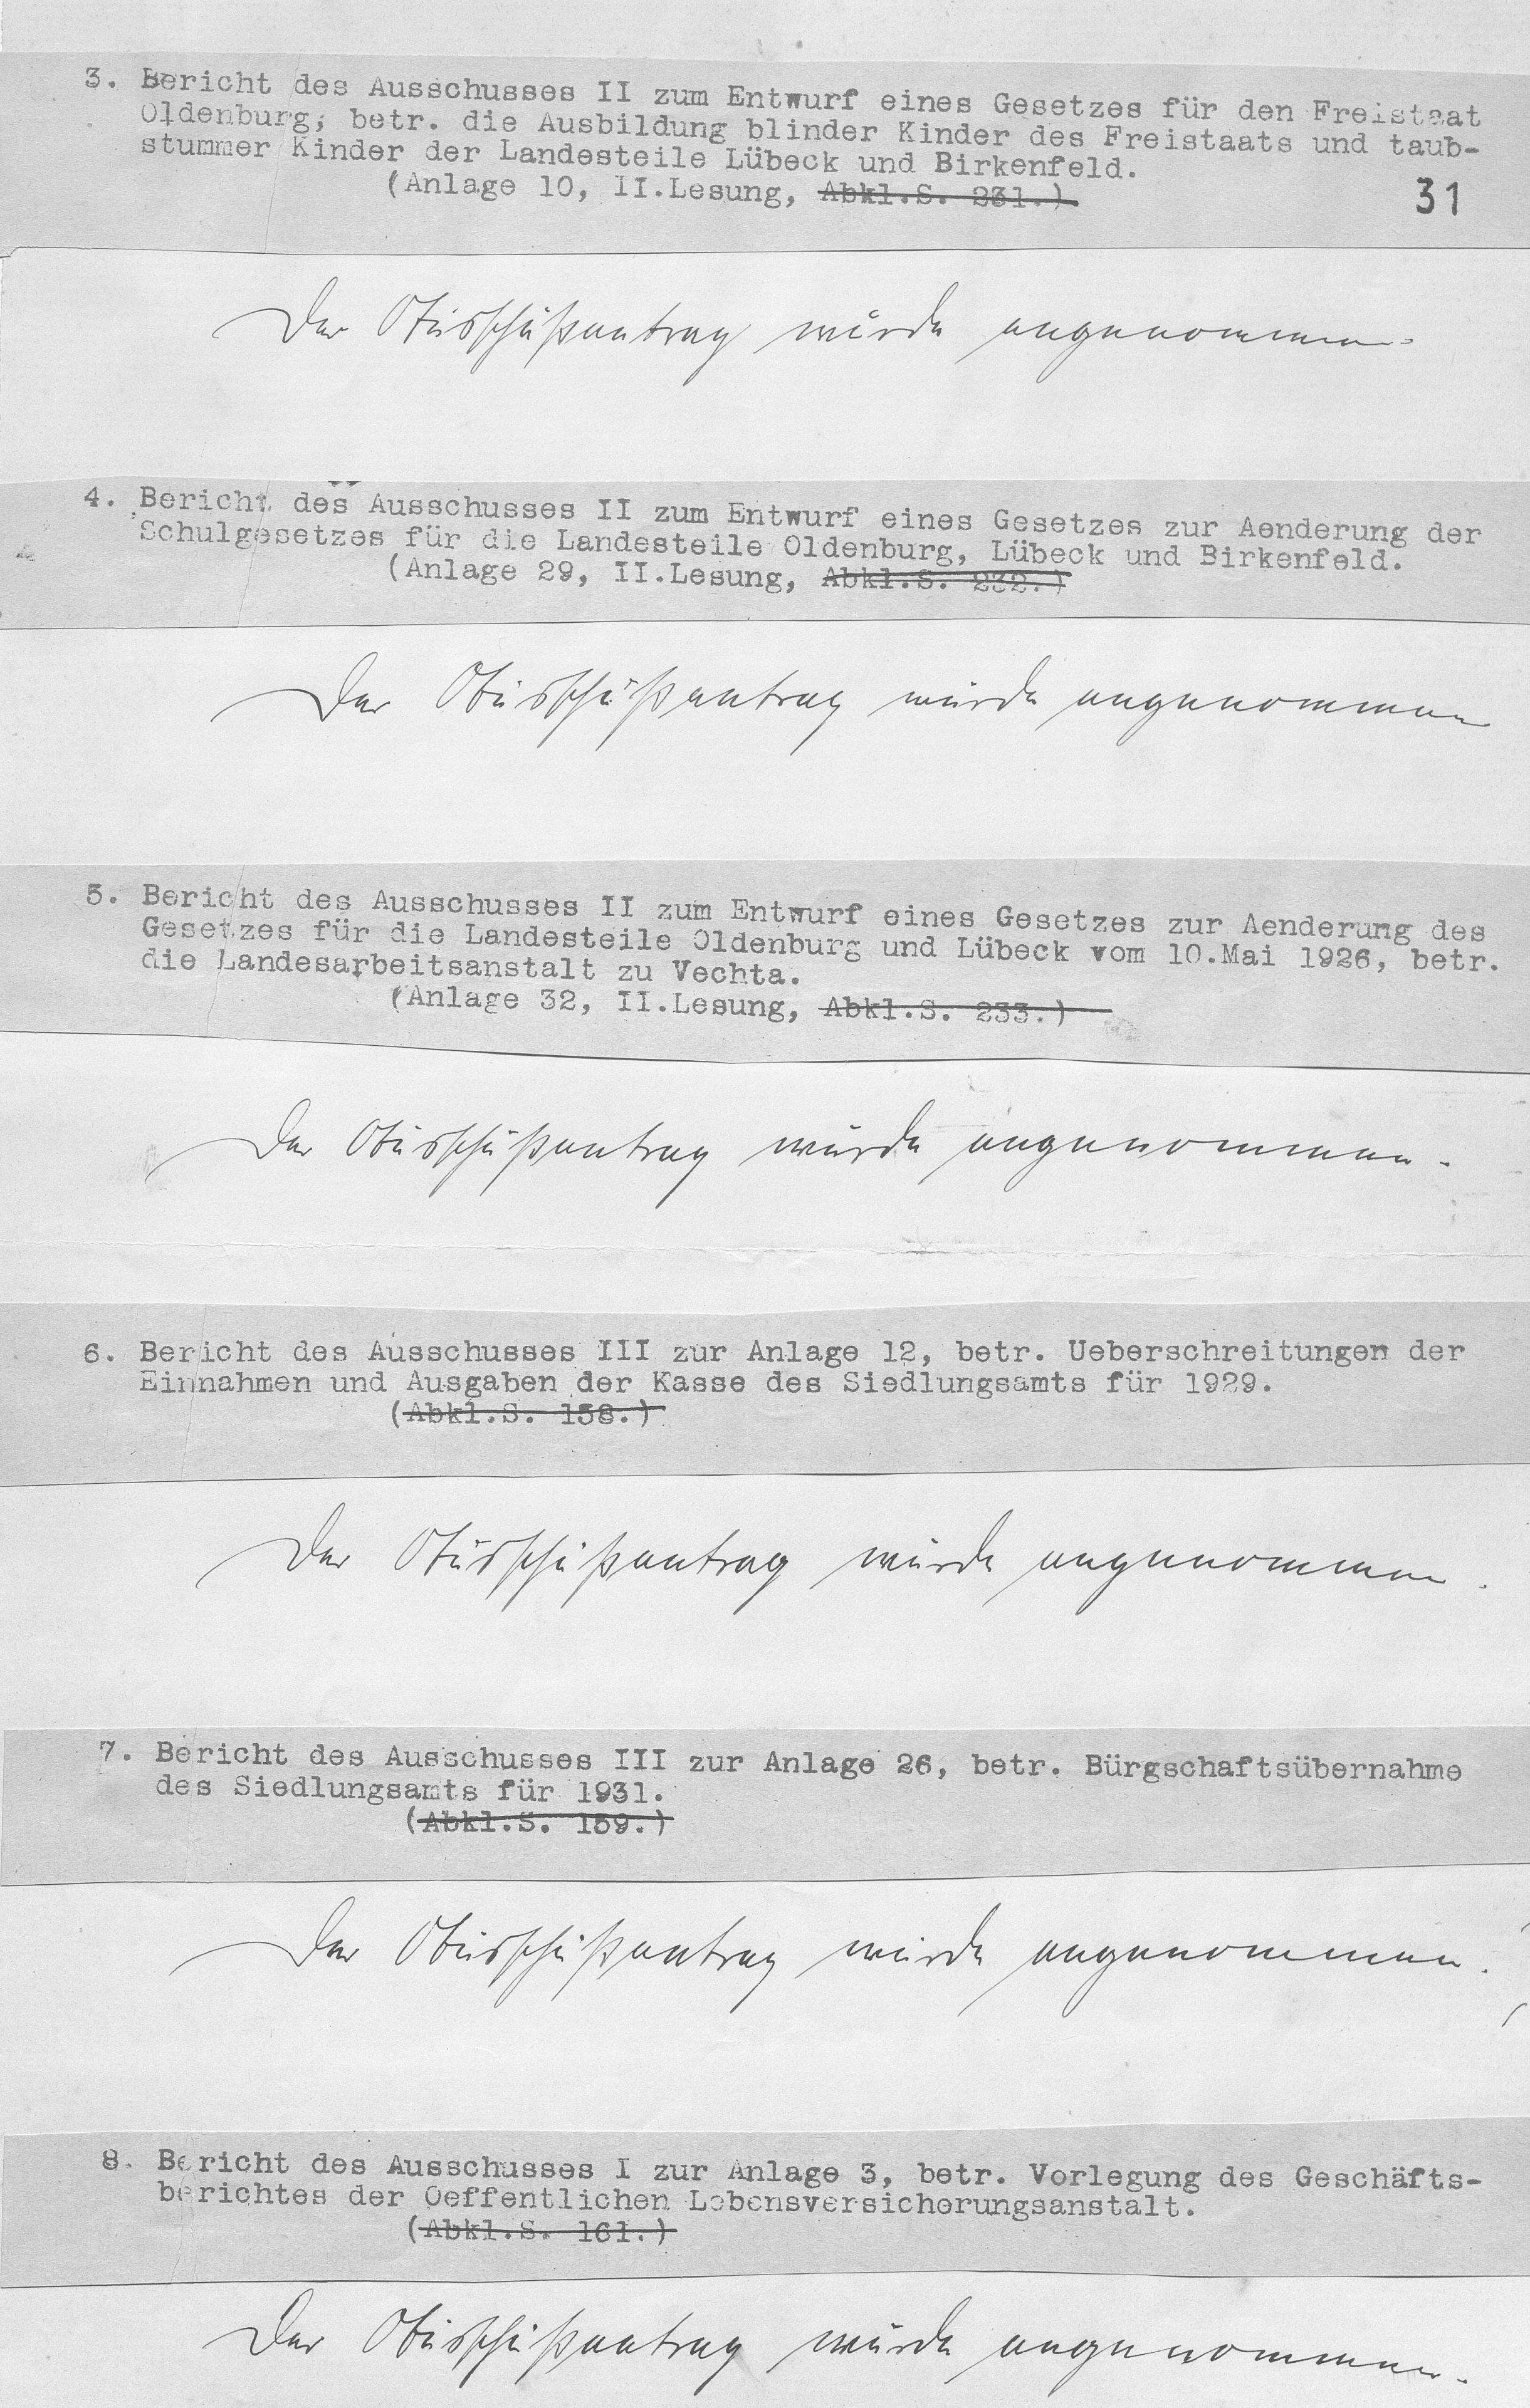 3. Bericht des Ausschusses II zum Entwurf eines Gesetzes für den Freistaat
Oldenburg, betr. die Ausbildung blinder Kinder des Freistaats und taub-
stummer Kinder der Landesteile Lübeck und Birkenfeld.
(Anlage 10, II.Lesung, Abkl.S. 231.)
31
Der Ausschußantrag wurde angenommen.
4. Bericht des Ausschusses II zum Entwurf eines Gesetzes zur Aenderung der
Schulgesetzes für die Landesteile Oldenburg, Lübeck und Birkenfeld.
(Anlage 29, II.Lesung, Abkl.S. 232.)
Der Ausschußantrag wurde angenommen
5. Bericht des Ausschusses II zum Entwurf eines Gesetzes zur Aenderung des
Gesetzes für die Landesteile Oldenburg und Lübeck vom 10.Mai 1926, betr.
die Landesarbeitsanstalt zu Vechta.
(Anlage 32, II.Lesung, Abkl.S. 233.)
Der Ausschußantrag wurde angenommen.
6. Bericht des Ausschusses III zur Anlage 12, betr. Ueberschreitungen der
Einnahmen und Ausgaben der Kasse des Siedlungsamts für 1929.
(Abkl.S. 158.)
Der Ausschußantrag wurde angenommen.
7. Bericht des Ausschusses III zur Anlage 26, betr. Bürgschaftsübernahme
des Siedlungsamts für 1931.
(Abkl.S. 159.)
Der Ausschußantrag wurde angenommen.
8. Bericht des Ausschusses I zur Anlage 3, betr. Vorlegung des Geschäfts-
berichtes der Oeffentlichen Lebensversicherungsanstalt.
(Abkl.S. 161.)
Der Ausschußantrag wurde angenommen.